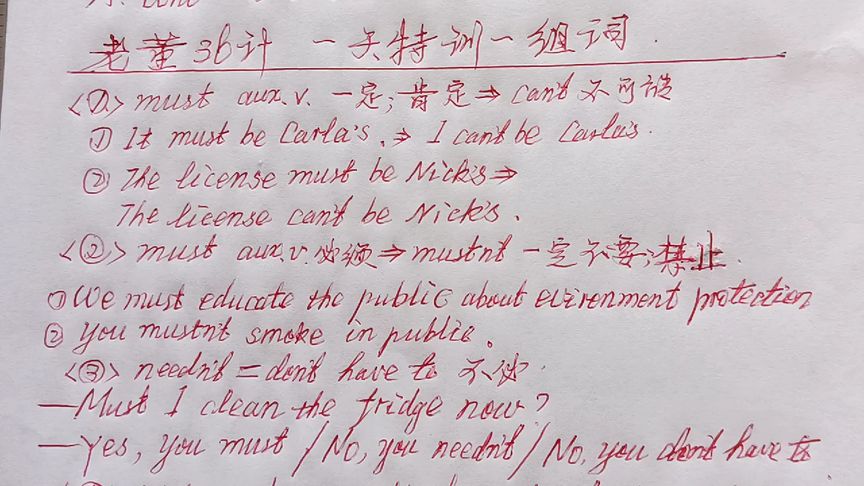 老董36计 一天特训一组词.
<①> must aux.v. 一定;肯定⇒ can't 不可能
① It must be Carla's. ⇒ I can't be Carla's.
② The license must be Nick's⇒
The license can't be Nick's.
<②> must aux.v.必须⇒ mustn't 一定不要;禁止.
① We must educate the public about evirenment protection
② you mustn't smoke in public.
<③> needn't = don't have to 不必.
—Must I clean the fridge now?
—Yes, you must / No, you needn't / No, you don't have to